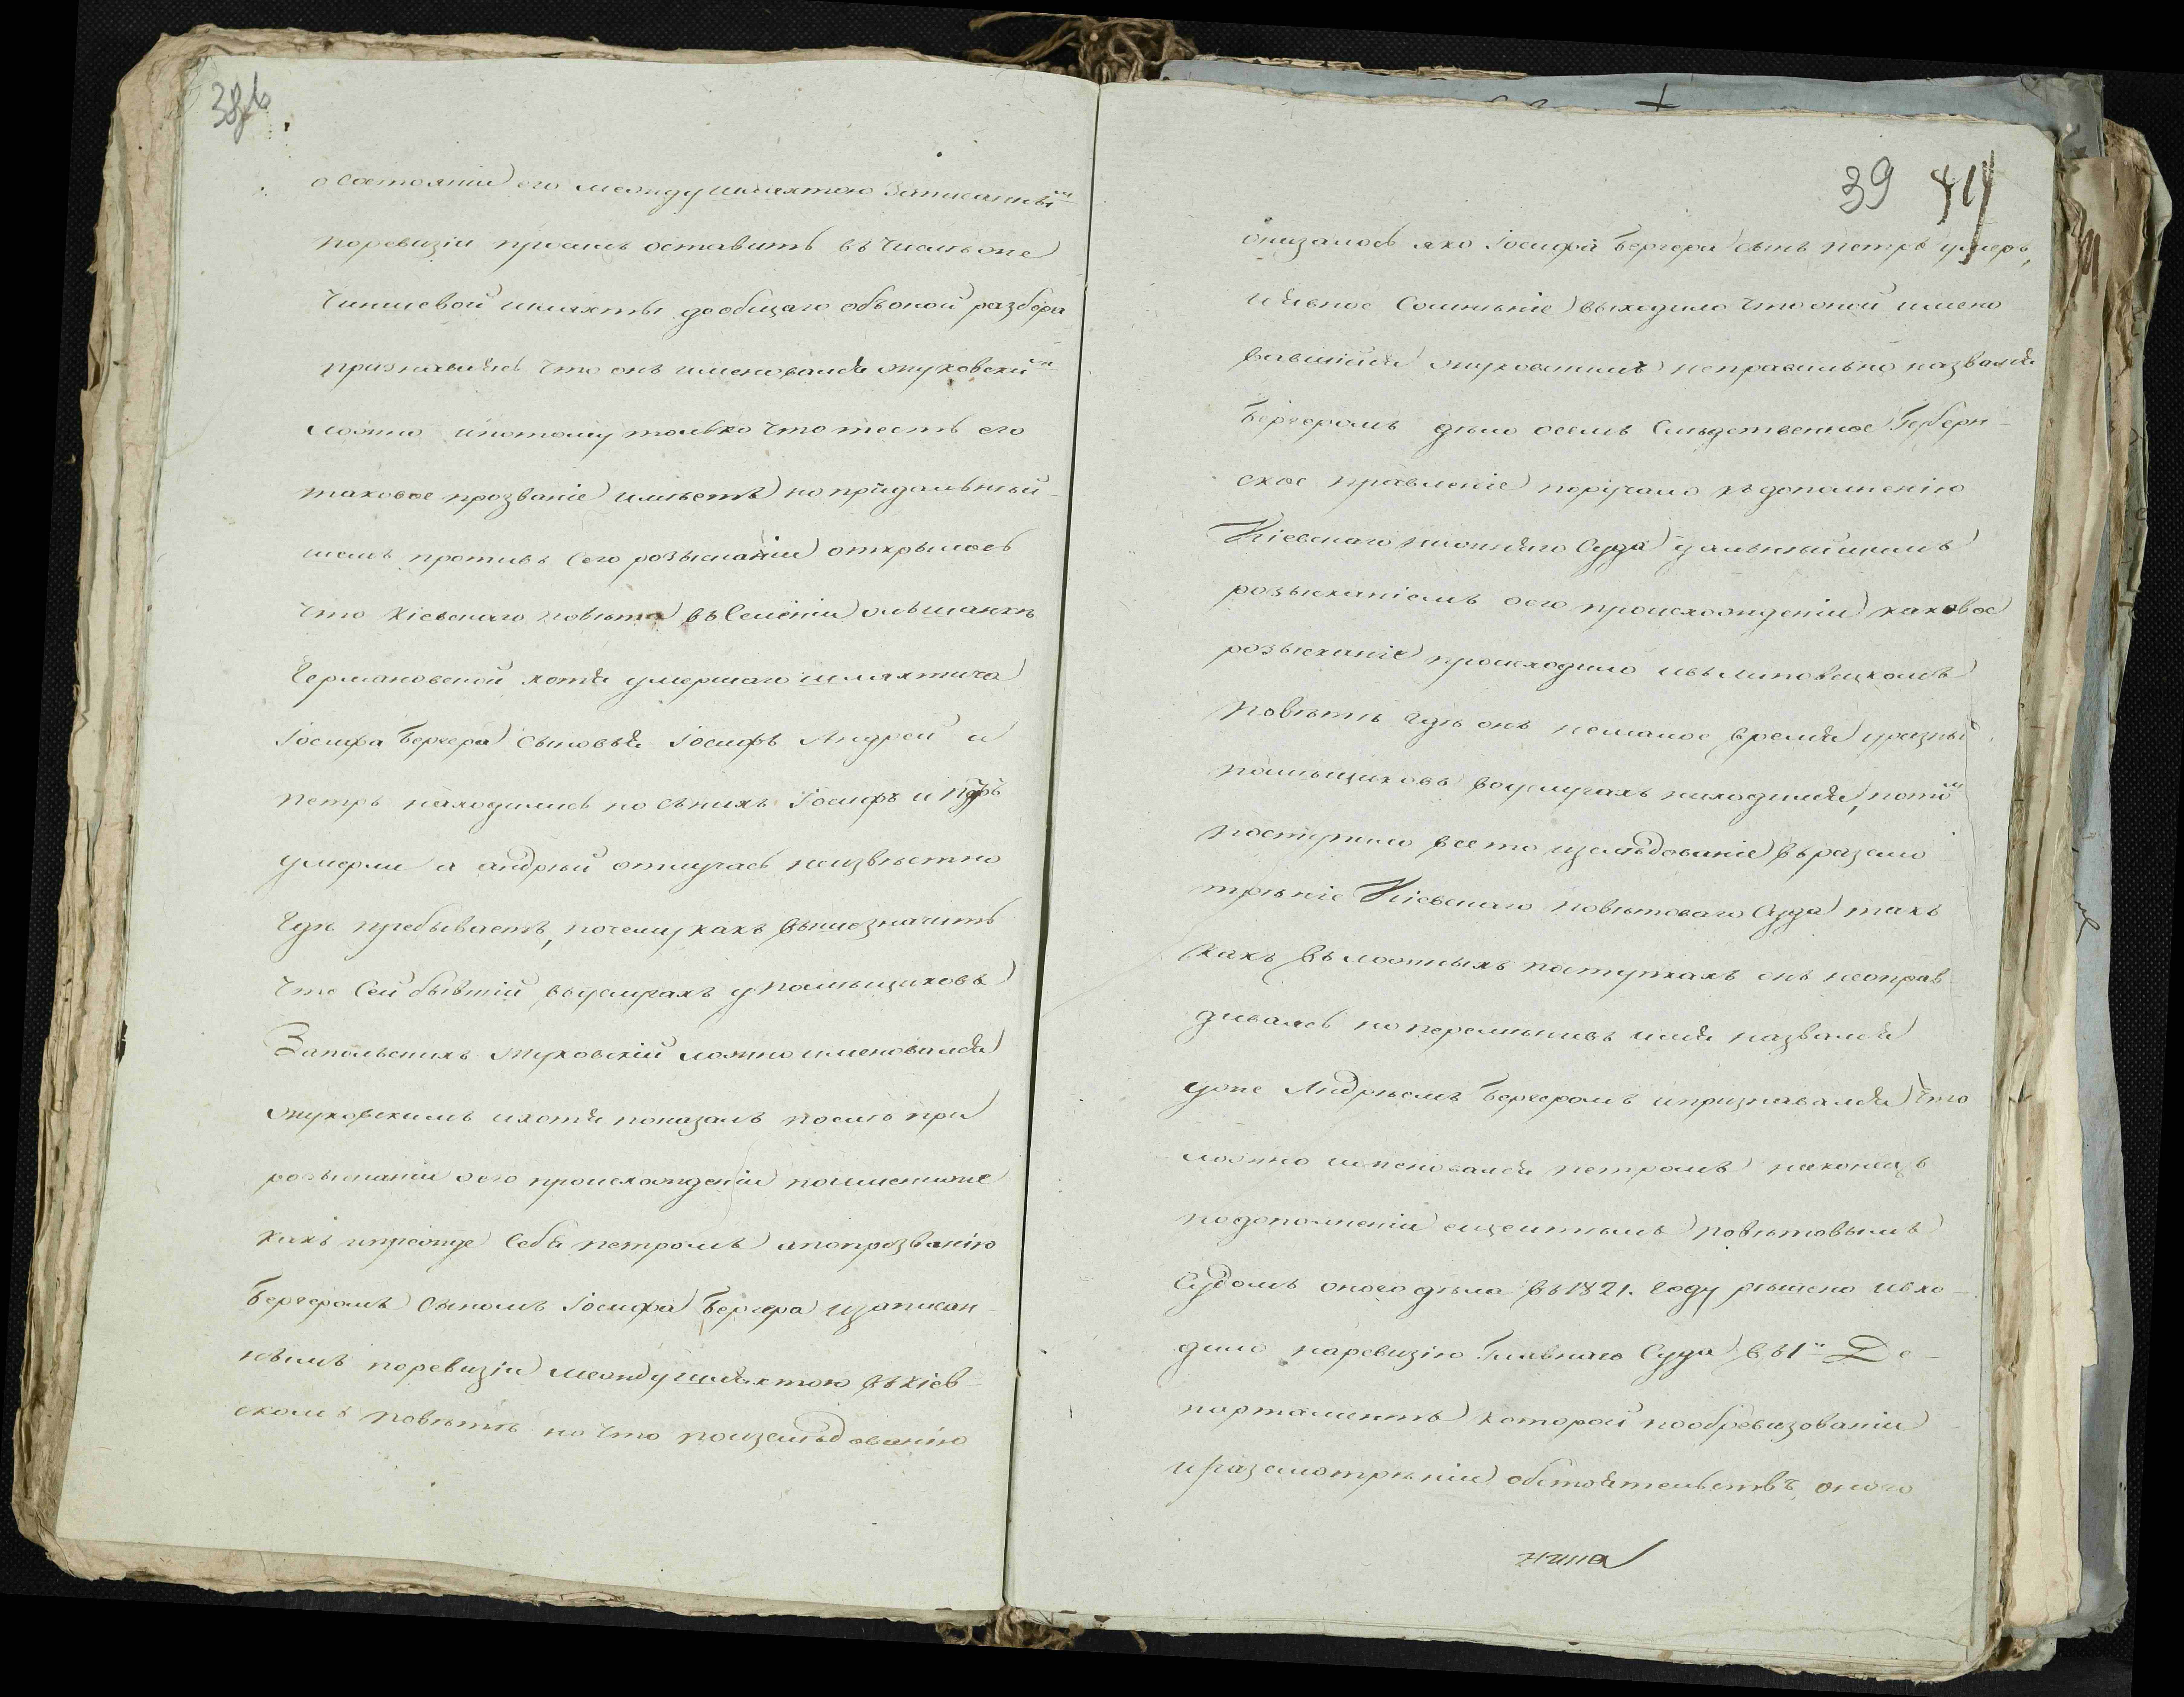 38б
о состоянии его между шляхтою записанны м
поревизіи просилъ оставить въ числѣ оне
Чиншевой шляхты дообщаго объоной разбора
признавшись что онъ именовался жуховски м
ложно ипотому только что тесть его
таковое прозваніе имѣетъ но придальнѣй-
шемъ противъ сего розысканіи открылось
что Кіевскаго повѣта въ Селеніи ольшанкѣ
Германовской хотя умершаго шляхтича
Іосифа Бергера сыновья Іосифъ Андрей и
петръ находились но съ нихъ Іосифъ и Птръ
умерли а андрѣй отлучась неизвѣстно
гдѣ пребываетъ, почему какъ вышезначитъ
что Сей бывшій въуслугахъ у помѣщиковъ
Запольскихъ Жуховскій ложно именовался
жуховскимъ ихотя показалъ послѣ при
розысканіи оего происхожденіи поименіюже
какъ ипрежде себя петромъ апопрозванію
Бергеромъ сыномъ Іосифа Бергера изаписан-
нымъ поревизіи между шляхтою въ Кіев-
скомъ повѣтѣ но что поизслѣдованію
39 41
оказалось яко Іосифа Бергера сынъ петръ умеръ,
иявное сомнѣніе выходило что оной имено
вавшийся жуховскимъ неправильно назвался
Бергеромъ дѣло осемъ Слѣдственное Губерн-
ское правленіе поручало къ дополненію
Кіевскаго нижняго Суда дальнѣйшимъ
розысканіемъ оего происхожденіи каковое
розысканіе происходило ивъ липовецкомъ
повѣтѣ гдѣ онъ немалое время уразны
помѣщиковъ воуслугахъ находился, пото м
поступило все то изслѣдованіе въ разсмо
трѣніе Кіевскаго повѣтоваго Суда такъ
какъ въ ложныхъ поступкахъ онъ неоправ
дывалсь но перемѣнивъ имя назвался
уже Андрѣемъ Бергеромъ ипризнавался что
ложно именовался петромъ наконецъ
подополненіи симъ повѣтовымъ
Судомъ оного дѣла въ 1821. году рѣшено ивхо-
дило наревизію Главнаго Суда въ 1й Де-
партаментъ которой пообревизованіи
и разсмотрѣніи обстоятельствъ оного
нина